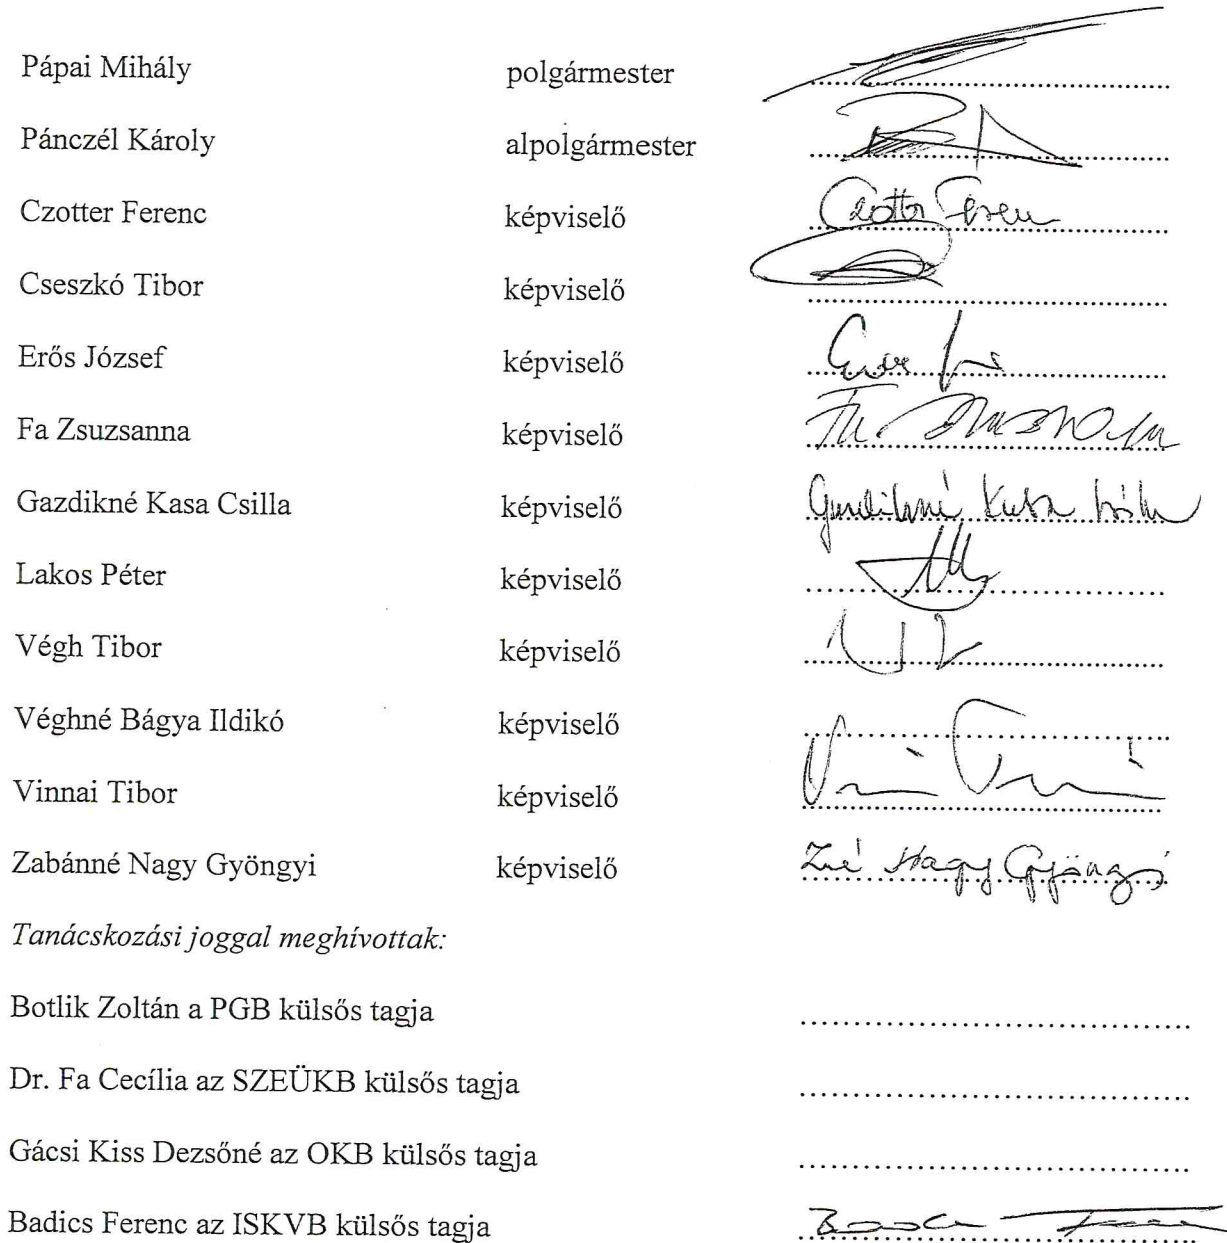 Pápai Mihály polgármester
Pánczél Károly alpolgármester
Czotter Ferenc képviselő Czotter Ferenc
Cseszkó Tibor képviselő
Erős József képviselő
Fa Zsuzsanna képviselő Fa Zsuzsanna
Gazdikné Kasa Csilla képviselő Gazdikné Kasa Csilla
Lakos Péter képviselő
Végh Tibor képviselő
Véghné Bágya Ildikó képviselő
Vinnai Tibor képviselő
Zabánné Nagy Gyöngyi képviselő Zné Nagy Gyöngyi
Tanácskozási joggal meghívottak:
Botlik Zoltán a PGB külsős tagja
Dr. Fa Cecília az SZEÜKB külsős tagja
Gácsi Kiss Dezsőné az OKB külsős tagja
Badics Ferenc az ISKVB külsős tagja